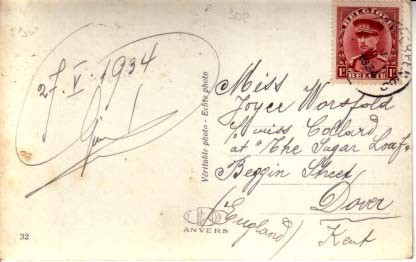 30F
27. V. 1934
Véritable photo - Echte photo
Miss
Joyce Worsfold
C/o miss Collard
at "The Sugar Loaf"
Beggin Street
Dover
(England)
Kent
BELGIQUE
BELGIË
1F
1F
ANVERS
32